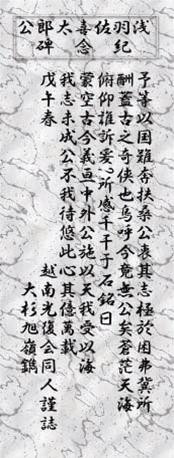 浅羽佐喜太郎公
紀念碑
予等以国難奔扶桑公哀其志拯於困弗冀所
酬蓋古之奇侠也烏呼今竟無公矣蒼茫天海
俯仰誰訴爰泐所感于石銘曰
豪空古今義亘中外公施以天我受以海
我志未成公不我待悠悠此心其億萬載
戊午春 越南光復会同人謹誌
大杉旭嶺鐫